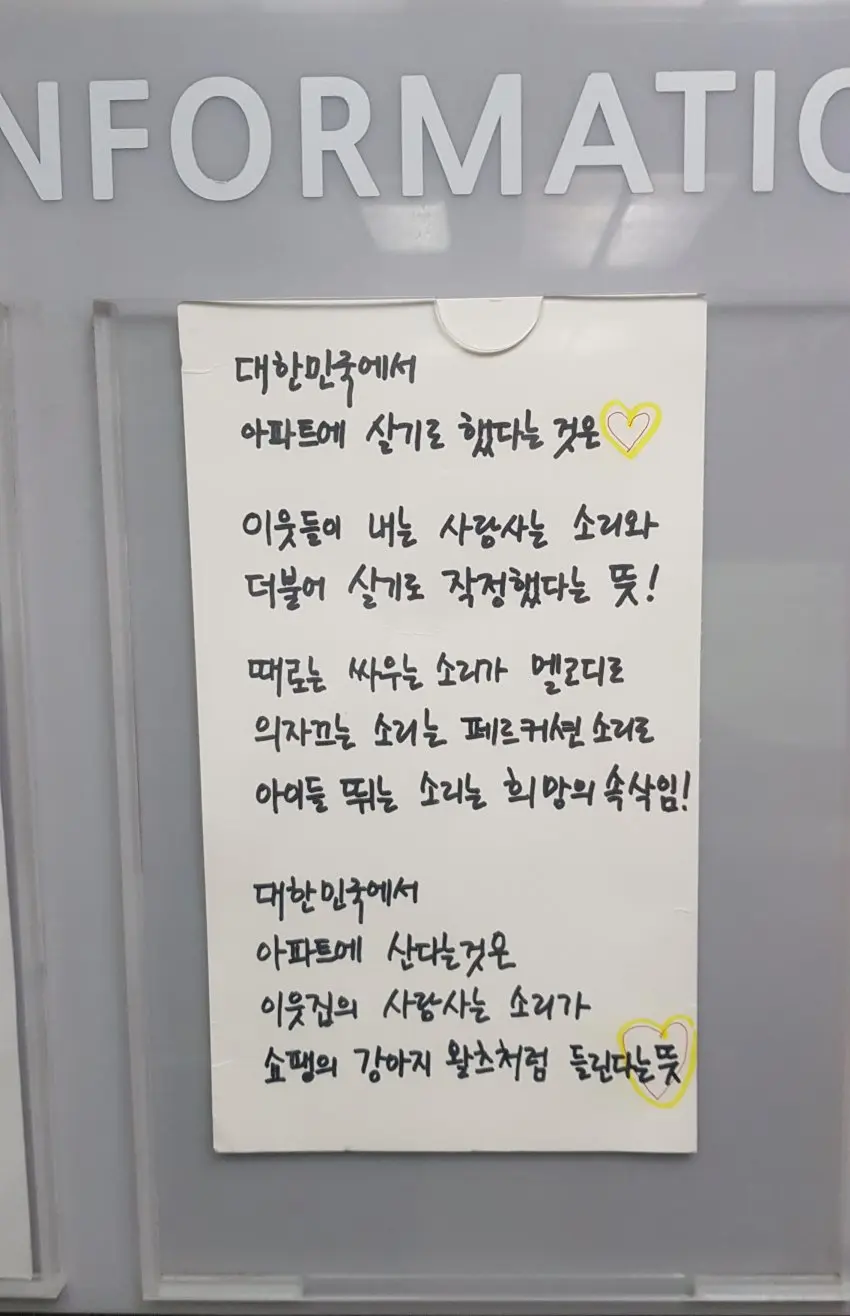 NFORMATIO
대한민국에서
아파트에 살기로 했다는 것은
이웃들이 내는 사람사는 소리와
더불어 살기로 작정했다는 뜻!
때로는 싸우는 소리가 멜로디로
의자끄는 소리는 페르커션 소리로
아이들 뛰는 소리는 희망의 속삭임!
대한민국에서
아파트에 산다는것은
이웃집의 사람사는 소리가
쇼팽의 강아지 왈츠처럼 들린다는 뜻